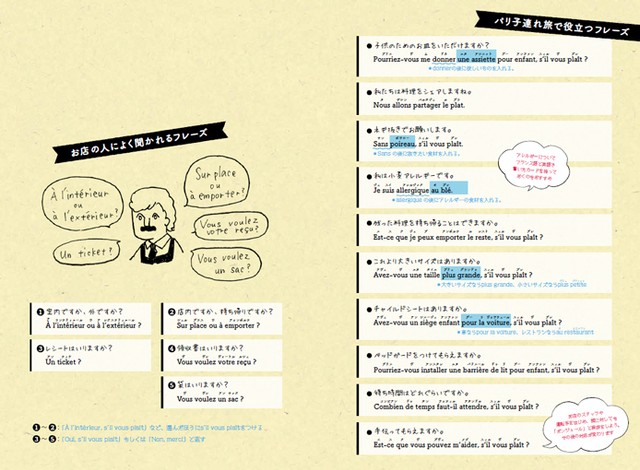 お店の人によく聞かれるフレーズ
À l'intérieur
ou
à l'extérieur?
Un ticket?
Sur place
ou
à emporter?
Vous voulez
votre reçu?
Vous voulez
un sac?
❶ 室内ですか、外ですか?
À l'intérieur ou à l'extérieur ?
❷ 店内ですか、持ち帰りですか?
Sur place ou à emporter ?
❸ レシートはいりますか?
Un ticket ?
❹ 領収書はいりますか?
Vous voulez votre reçu ?
❺ 袋はいりますか?
Vous voulez un sac ?
❶〜❷:「À l'intérieur, s'il vous plaît」など、選んだほうにs'il vous plaîtをつける
❸〜❺:「Oui, s'il vous plaît」もしくは「Non, merci」と返す
パリ子連れ旅で役立つフレーズ
●子供のためのお皿をいただけますか?
Pourriez-vous me donner une assiette pour enfant, s'il vous plaît ?
★donnerの後に欲しいものを入れる。
●私たちは料理をシェアしますね。
Nous allons partager le plat.
●ネギ抜きでお願いします。
Sans poireau, s'il vous plaît.
★Sans の後に抜きたい食材を入れる。
●私は小麦アレルギーです。
Je suis allergique au blé.
★allergique の後にアレルギーの食材を入れる。
アレルギーについて
フランス語と英語を
書いたカードを持って
おくのもおすすめ
●残った料理を持ち帰ることはできますか?
Est-ce que je peux emporter le reste, s'il vous plaît ?
●これより大きいサイズはありますか?
Avez-vous une taille plus grande, s'il vous plaît ?
★大きいサイズならplus grande、小さいサイズならplus petite
●チャイルドシートはありますか?
Avez-vous un siège enfant pour la voiture, s'il vous plaît ?
★車ならpour la voiture、レストランならau restaurant
●ベッドガードをつけてもらえますか?
Pourriez-vous installer une barrière de lit pour enfant, s'il vous plaît ?
●待ち時間はどれぐらいですか?
Combien de temps faut-il attendre, s'il vous plaît ?
●手伝ってもらえますか?
Est-ce que vous pouvez m'aider, s'il vous plaît ?